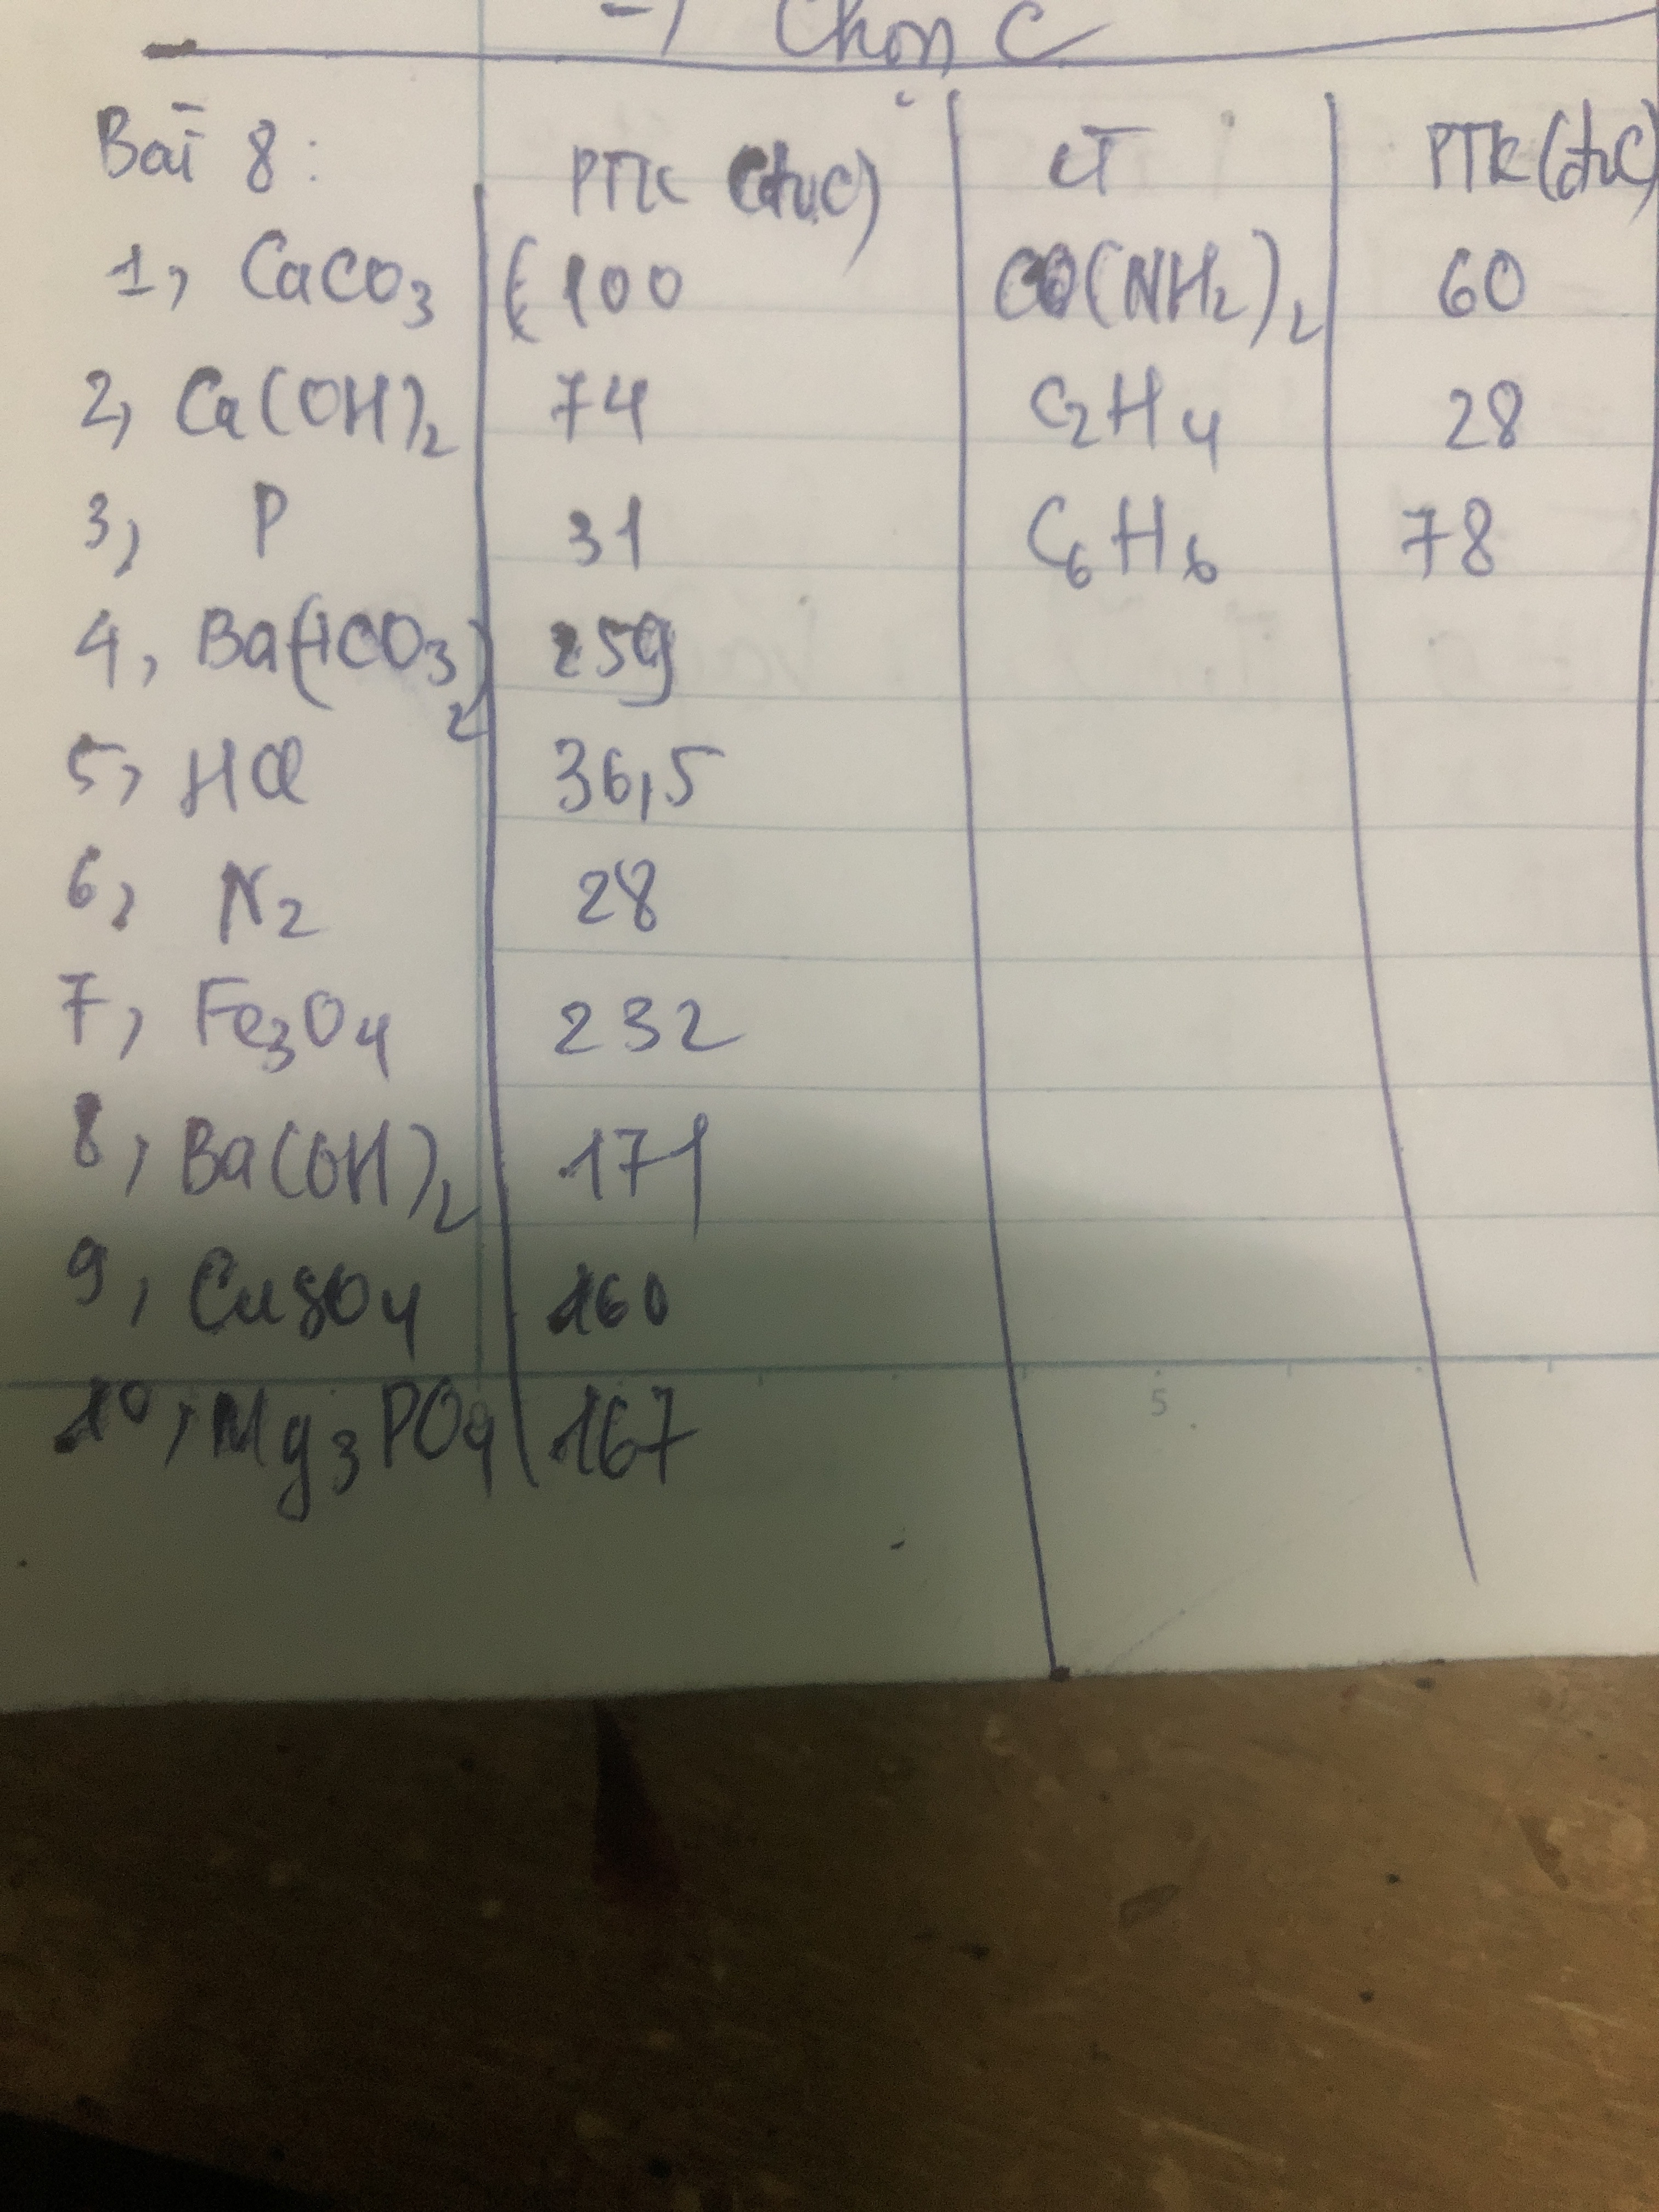 -) Chọn C
Bài 8: PTK (đvC) CT PTK (đvC)
1, CaCO3 100 CO(NH2)2 60
2, Ca(OH)2 74 C2H4 28
3, P 31 C6H6 78
4, Ba(HCO3)2 259
5, HCl 36,5
6, N2 28
7, Fe3O4 232
8, Ba(OH)2 171
9, CuSO4 160
10, Mg3PO4 167
5